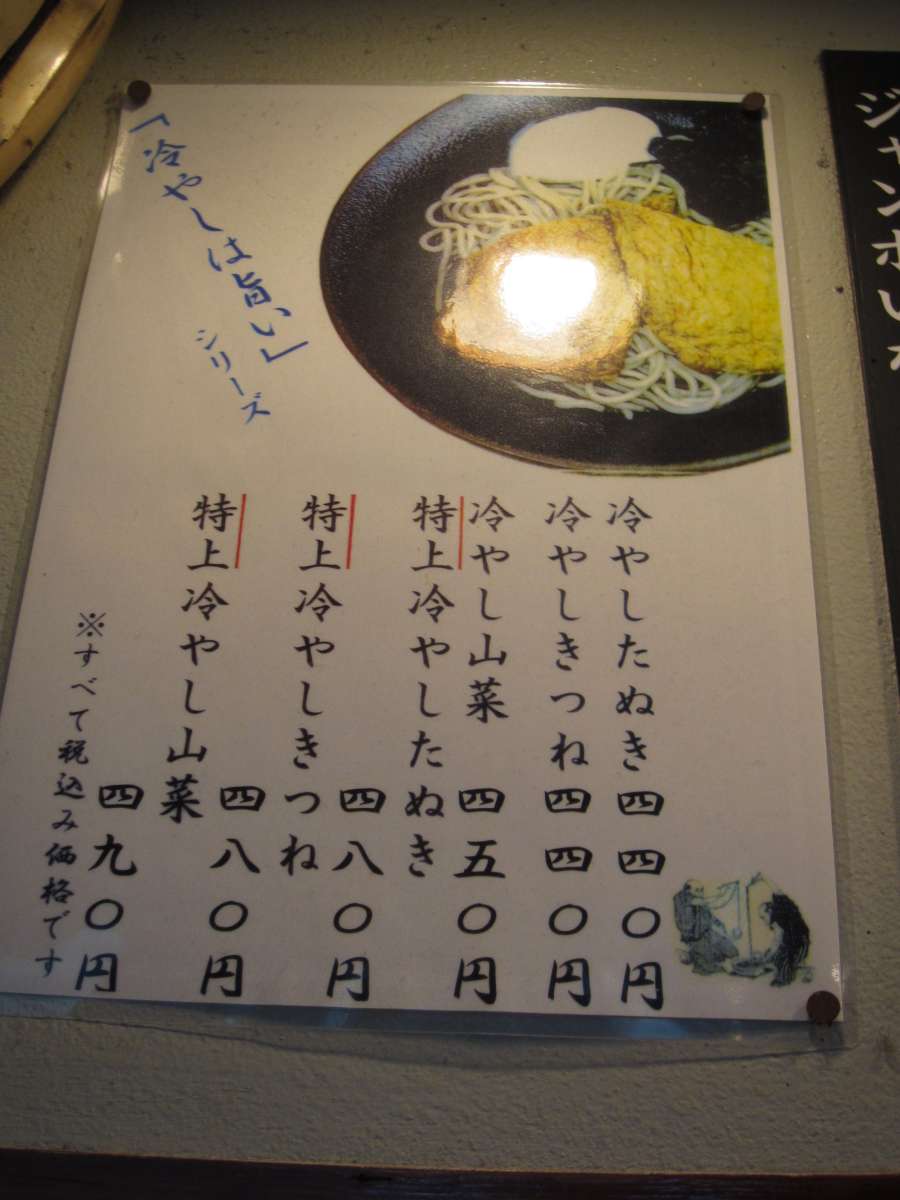 「冷やしは旨い」
シリーズ
冷やしたぬき 四四〇円
冷やしきつね 四四〇円
冷やし山菜 四五〇円
特上冷やしたぬき 四八〇円
特上冷やしきつね 四八〇円
特上冷やし山菜 四九〇円
※すべて税込み価格です
ジャンボい